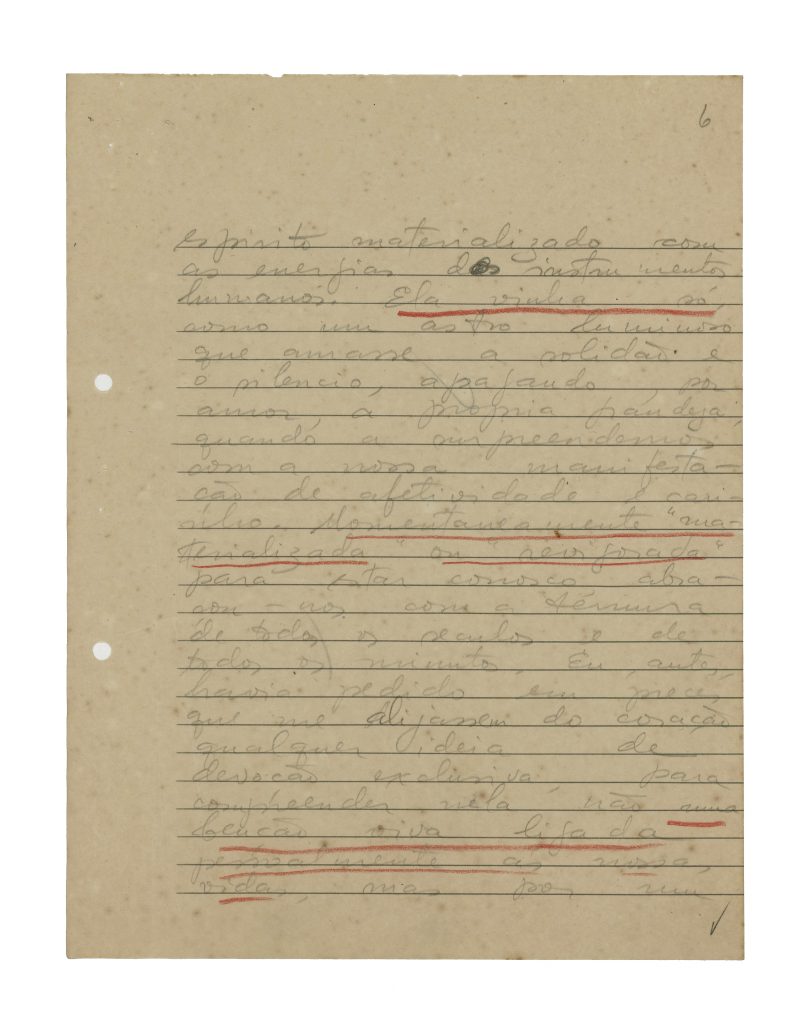 6
espirito materializado com
as energias dos instrumentos
humanos. Ela vinha só,
como um astro luminoso
que amasse a solidão e
o silencio, apagando, por
amor, a propria grandeza,
quando a surpreendemos
com a nossa manifesta-
ção de afetividade e cari-
nho. Momentaneamente "ma-
terializada" ou "revigorada"
para estar conosco abra-
çou-nos com a ternura
de todos os seculos e de
todos os minutos. Eu, antes,
havia pedido em preces
que me alijassem do coração
qualquer ideia de
devoção exclusiva, para
compreender nela não uma
benção viva ligada
às nossas
vidas, mas por um